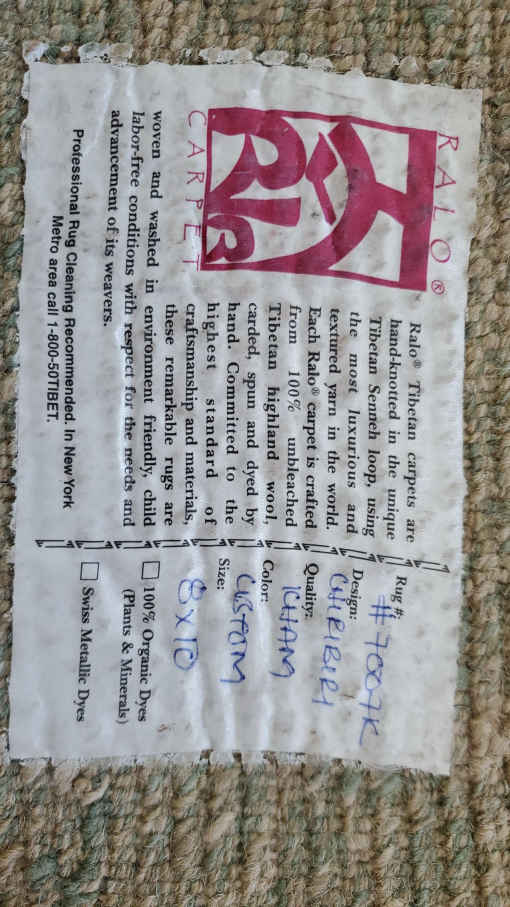 RALO®
CARPET
Ralo® Tibetan carpets are
hand-knotted in the unique
Tibetan Senneh loop, using
the most luxurious and
textured yarn in the world.
Each Ralo® carpet is crafted
from 100% unbleached
Tibetan highland wool,
carded, spun and dyed by
hand. Committed to the
highest standard of
craftsmanship and materials,
these remarkable rugs are
woven and washed in environment friendly, child
labor-free conditions with respect for the needs and
advancement of its weavers.
Professional Rug Cleaning Recommended. In New York
Metro area call 1-800-50TIBET.
Rug #:
#7007K
Design:
CHIRIBIRI
Quality:
KHAM
Color:
CUSTOM
Size:
8x10
100% Organic Dyes
(Plants & Minerals)
Swiss Metallic Dyes